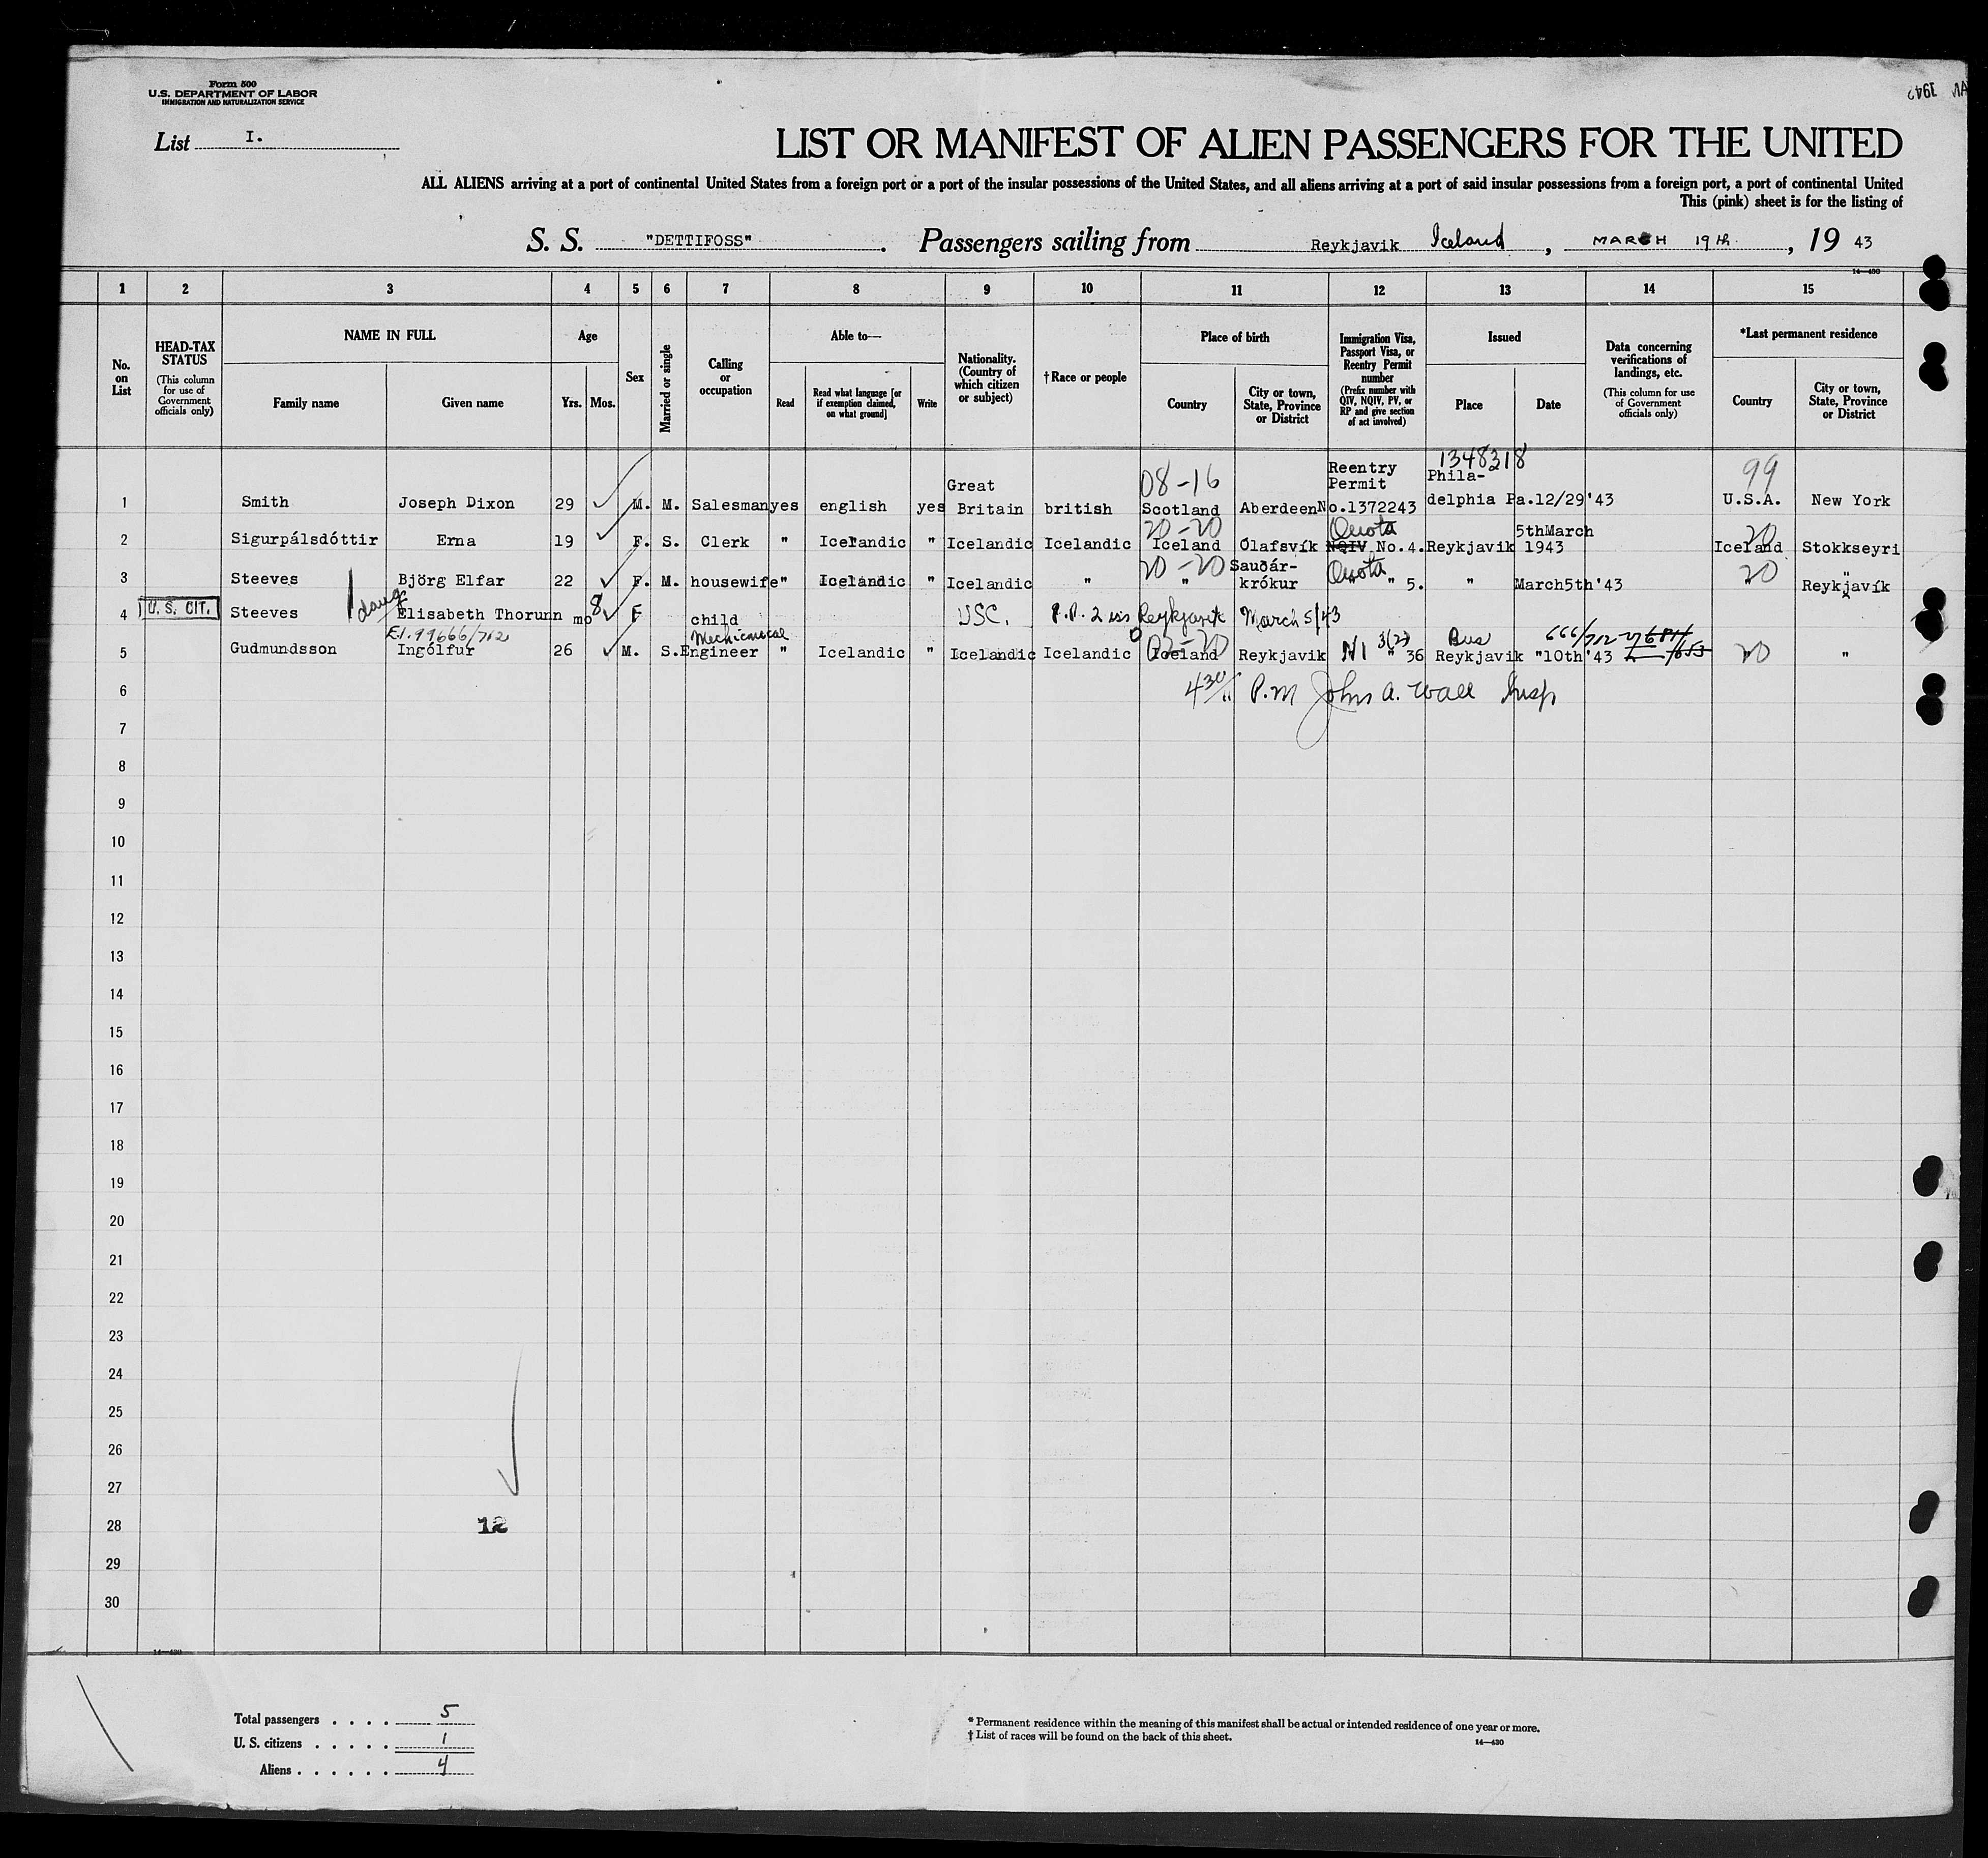 Form 500
U.S. DEPARTMENT OF LABOR
IMMIGRATION AND NATURALIZATION SERVICE
1942
List I.
LIST OR MANIFEST OF ALIEN PASSENGERS FOR THE UNITED
ALL ALIENS arriving at a port of continental United States from a foreign port or a port of the insular possessions of the United States, and all aliens arriving at a port of said insular possessions from a foreign port, a port of continental United
This (pink) sheet is for the listing of
S. S. "DETTIFOSS". Passengers sailing from Reykjavik Iceland, MARCH 19th., 19 43
14—430
1 2 3 4 5 6 7 8 9 10 11 12 13 14 15
No. on List
HEAD-TAX STATUS (This column for use of Government officials only)
NAME IN FULL
Family name Given name
Age
Yrs. Mos.
Sex
Married or single
Calling or occupation
Able to—
Read
Read what language [or if exemption claimed, on what ground]
Write
Nationality. (Country of which citizen or subject)
†Race or people
Place of birth
Country
City or town, State, Province or District
Immigration Visa, Passport Visa, or Reentry Permit number (Prefix number with QIV, NQIV, PV, or RP and give section of act involved)
Issued
Place Date
Data concerning verifications of landings, etc. (This column for use of Government officials only)
*Last permanent residence
Country
City or town, State, Province or District
1348318
08-16 Reentry Permit Phila- 99
1 Smith Joseph Dixon 29 M. M. Salesman yes english yes Great Britain british Scotland Aberdeen No.1372243 delphia Pa. 12/29'43 U.S.A. New York
20-20 Quota 5thMarch 20
2 Sigurpálsdóttir Erna 19 F. S. Clerk " Icelandic " Icelandic Icelandic Iceland Ólafsvík NQIV No.4. Reykjavik 1943 Iceland Stokkseyri
20-20 Quota 20
3 Steeves Björg Elfar 22 F. M. housewife " Icelandic " Icelandic " " Sauðár-krókur " " 5. " March5th'43 " Reykjavík
4 U. S. CIT. Steeves daug Elisabeth Thorunn mo 8 F child USC. P.P. 2 iss Reykjavik March 5/43
E.I. 99666/712 Mechanical 02-20 3(2) Bus 666/712
5 Gudmundsson Ingólfur 26 M. S. Engineer " Icelandic " Icelandic Icelandic Iceland Reykjavik N1 " 36 Reykjavik "10th'43 20 "
6 4 30/ P.M John A. Wall Insp
7
8
9
10
11
12
13
14
15
16
17
18
19
20
21
22
23
24
25
26
27
28
12
29
30
14—430
Total passengers . . . . 5
U. S. citizens . . . . . 1
Aliens . . . . . . 4
* Permanent residence within the meaning of this manifest shall be actual or intended residence of one year or more.
† List of races will be found on the back of this sheet.
14—430